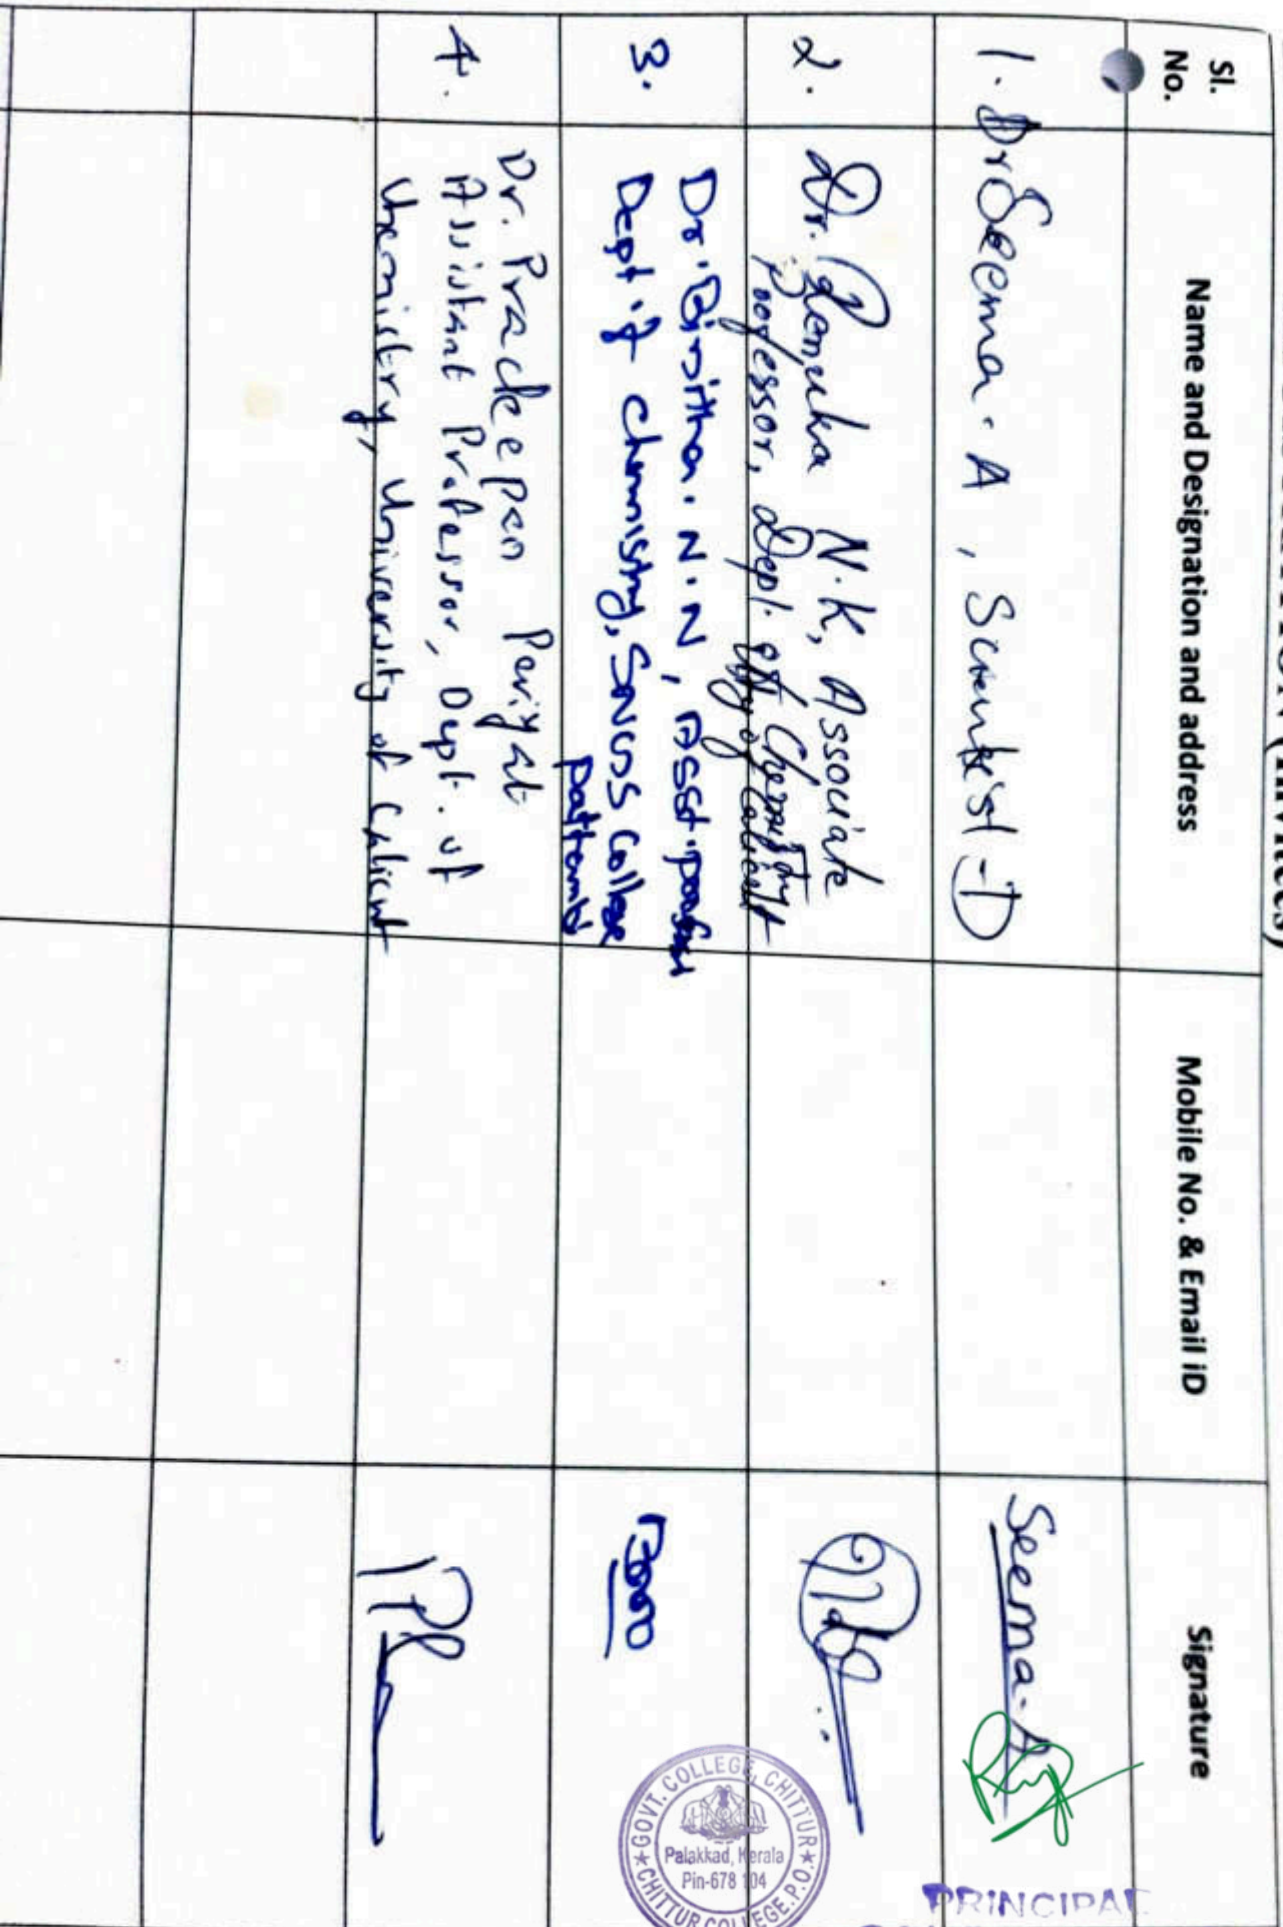 (Invitees)
Sl. No. Name and Designation and address Mobile No. & Email iD Signature
1. Dr Seema. A, Scientist-D Seema. A
2. Dr. Renuka N.K, Associate
Professor, Dept. of Chemistry
of Calicut
3. Dr. N.N, Asst.
Dept. of chemistry, SNGS College
Pattambi
4. Dr. Pradeepan Periyat
Assistant Professor, Dept. of
Chemistry, University of Calicut
GOVT. COLLEGE, CHITTUR
Palakkad, Kerala
Pin-678 104
CHITTUR COLLEGE.P.O.
PRINCIPAL